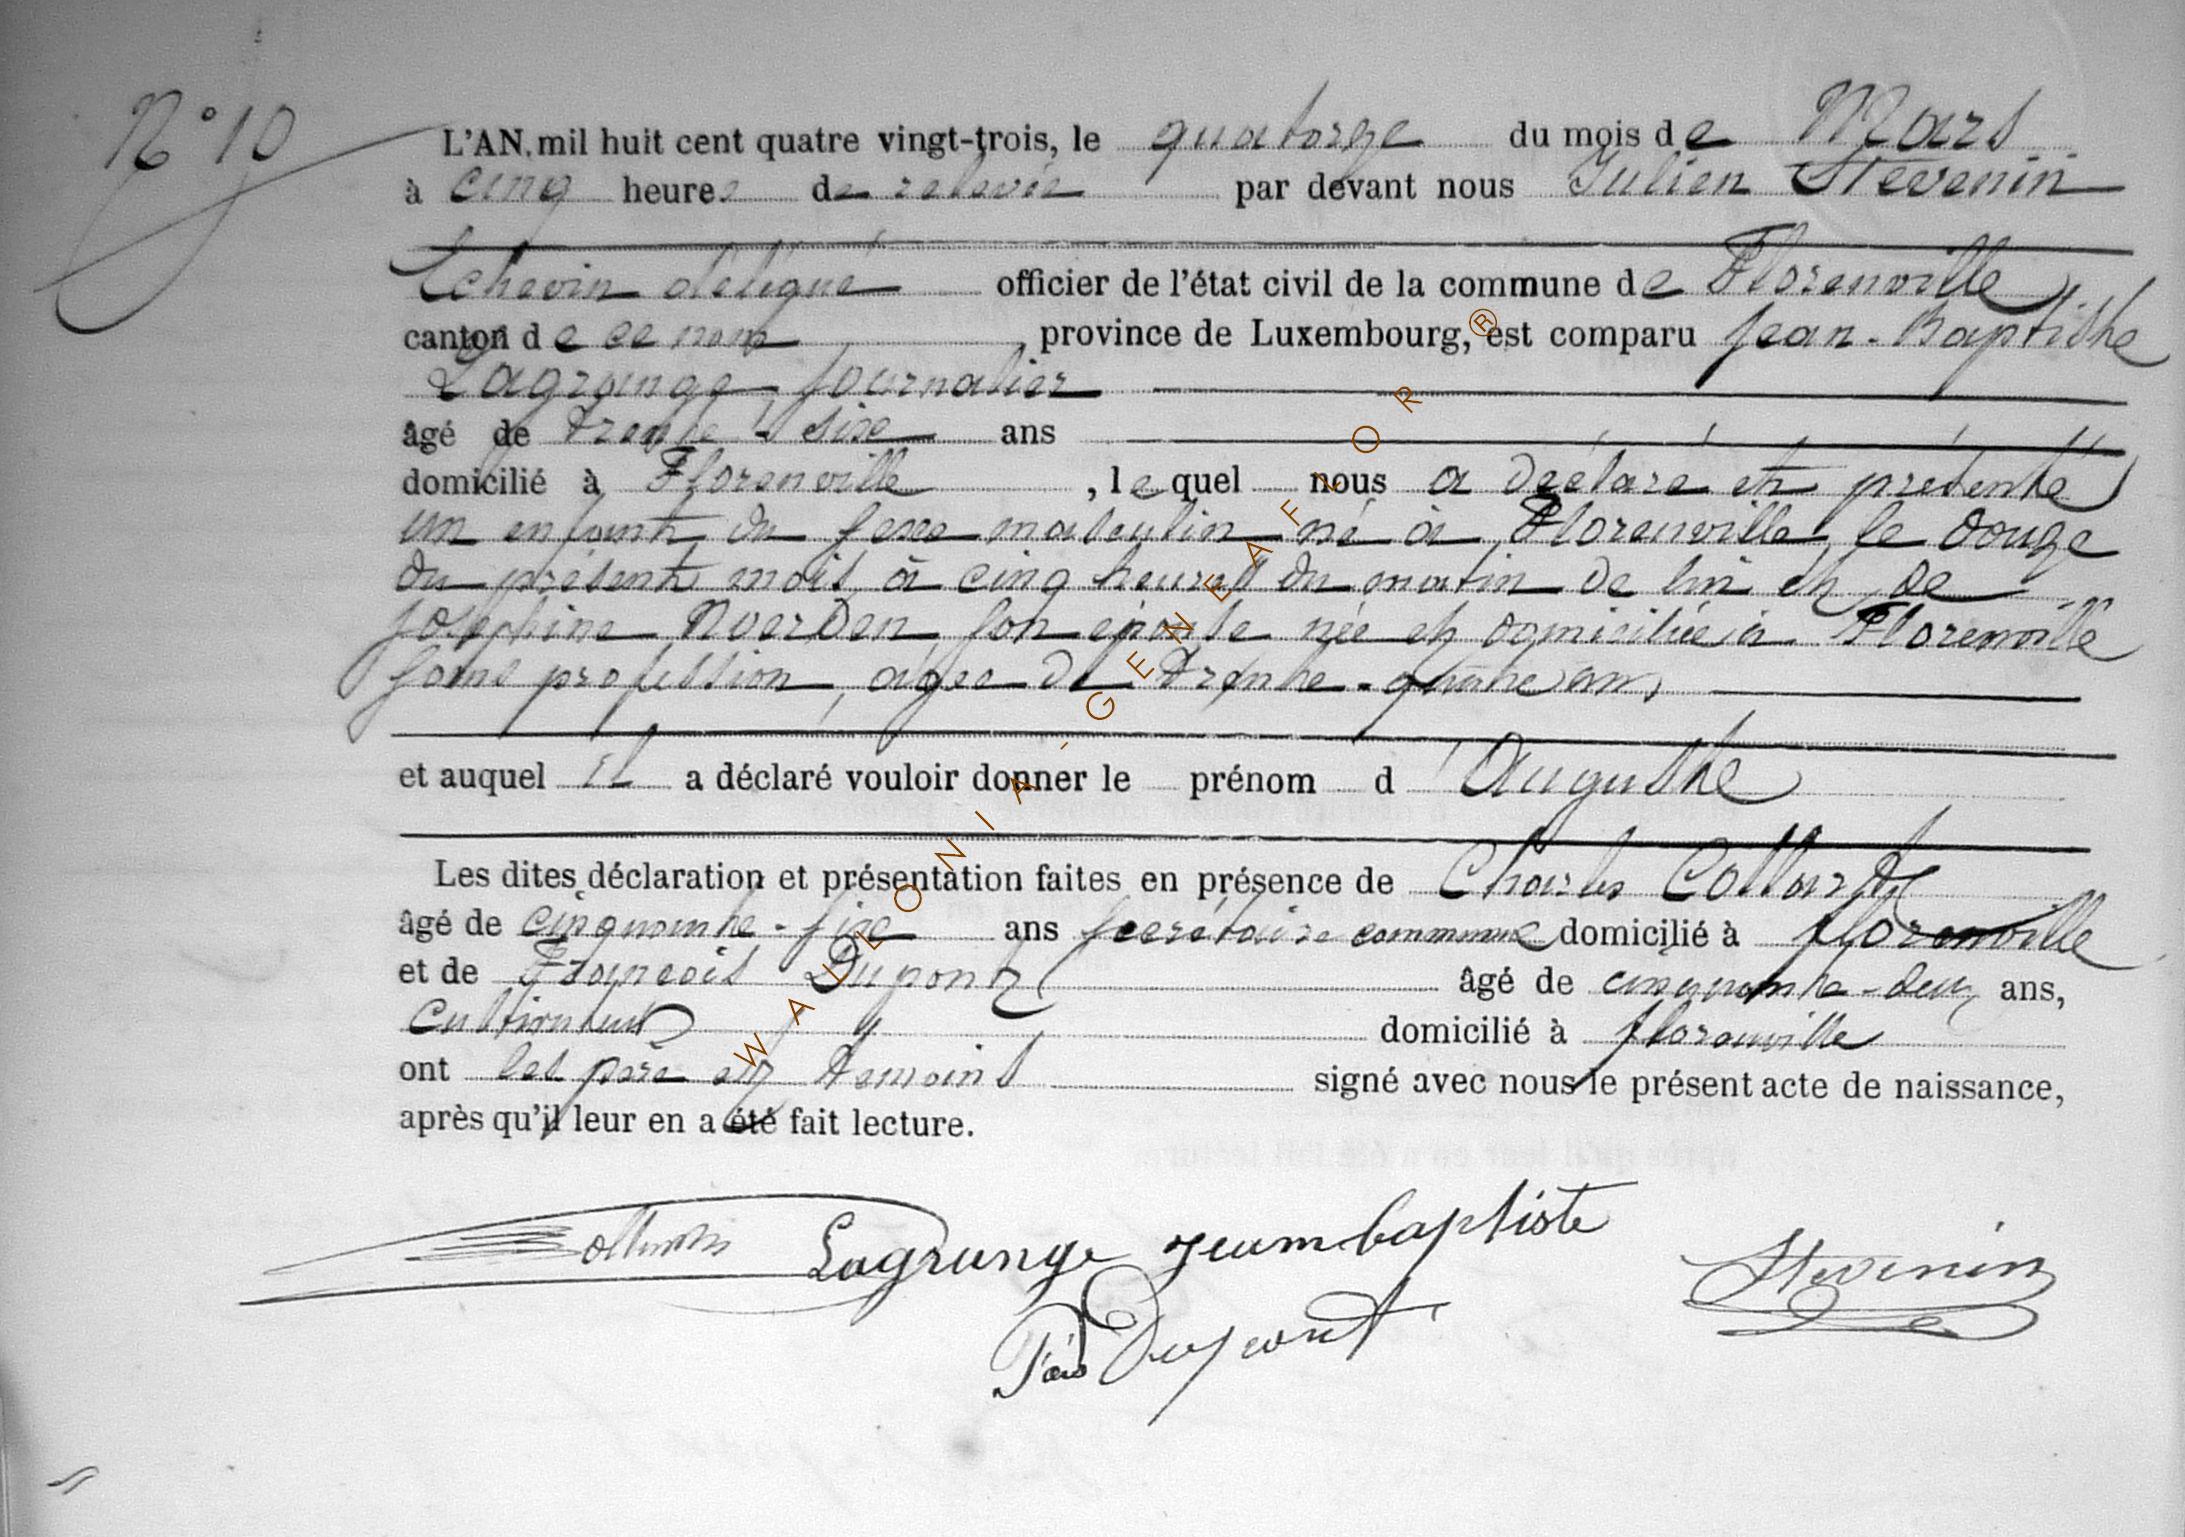 N° 10
L'AN mil huit cent quatre vingt-trois, le quatorze du mois de Mars
à cinq heures de relevée par devant nous Julien Stevenin
Echevin délégué officier de l'état civil de la commune de Florenville
canton de ce nom, province de Luxembourg, est comparu Jean-Baptiste
Lagrange, journalier
âgé de trente-six ans
domicilié à Florenville, lequel nous a déclaré et présenté
un enfant du sexe masculin né à Florenville, le douze
du présent mois, à cinq heures du matin de lui et de
Joséphine son épouse née et domiciliée à Florenville
sans profession, âgée de trente-quatre ans,
et auquel il a déclaré vouloir donner le prénom d'Auguste
Les dites déclaration et présentation faites en présence de Charles Collard
âgé de cinquante-six ans secrétaire communal domicilié à Florenville
et de François Dupont âgé de cinquante-deux ans,
Cultivateur domicilié à florenville
ont les père et témoins signé avec nous le présent acte de naissance,
après qu'il leur en a été fait lecture.
Lagrange jeambaptiste
Stevenin
Dupont
WALLONIA-GENEAFLOR®